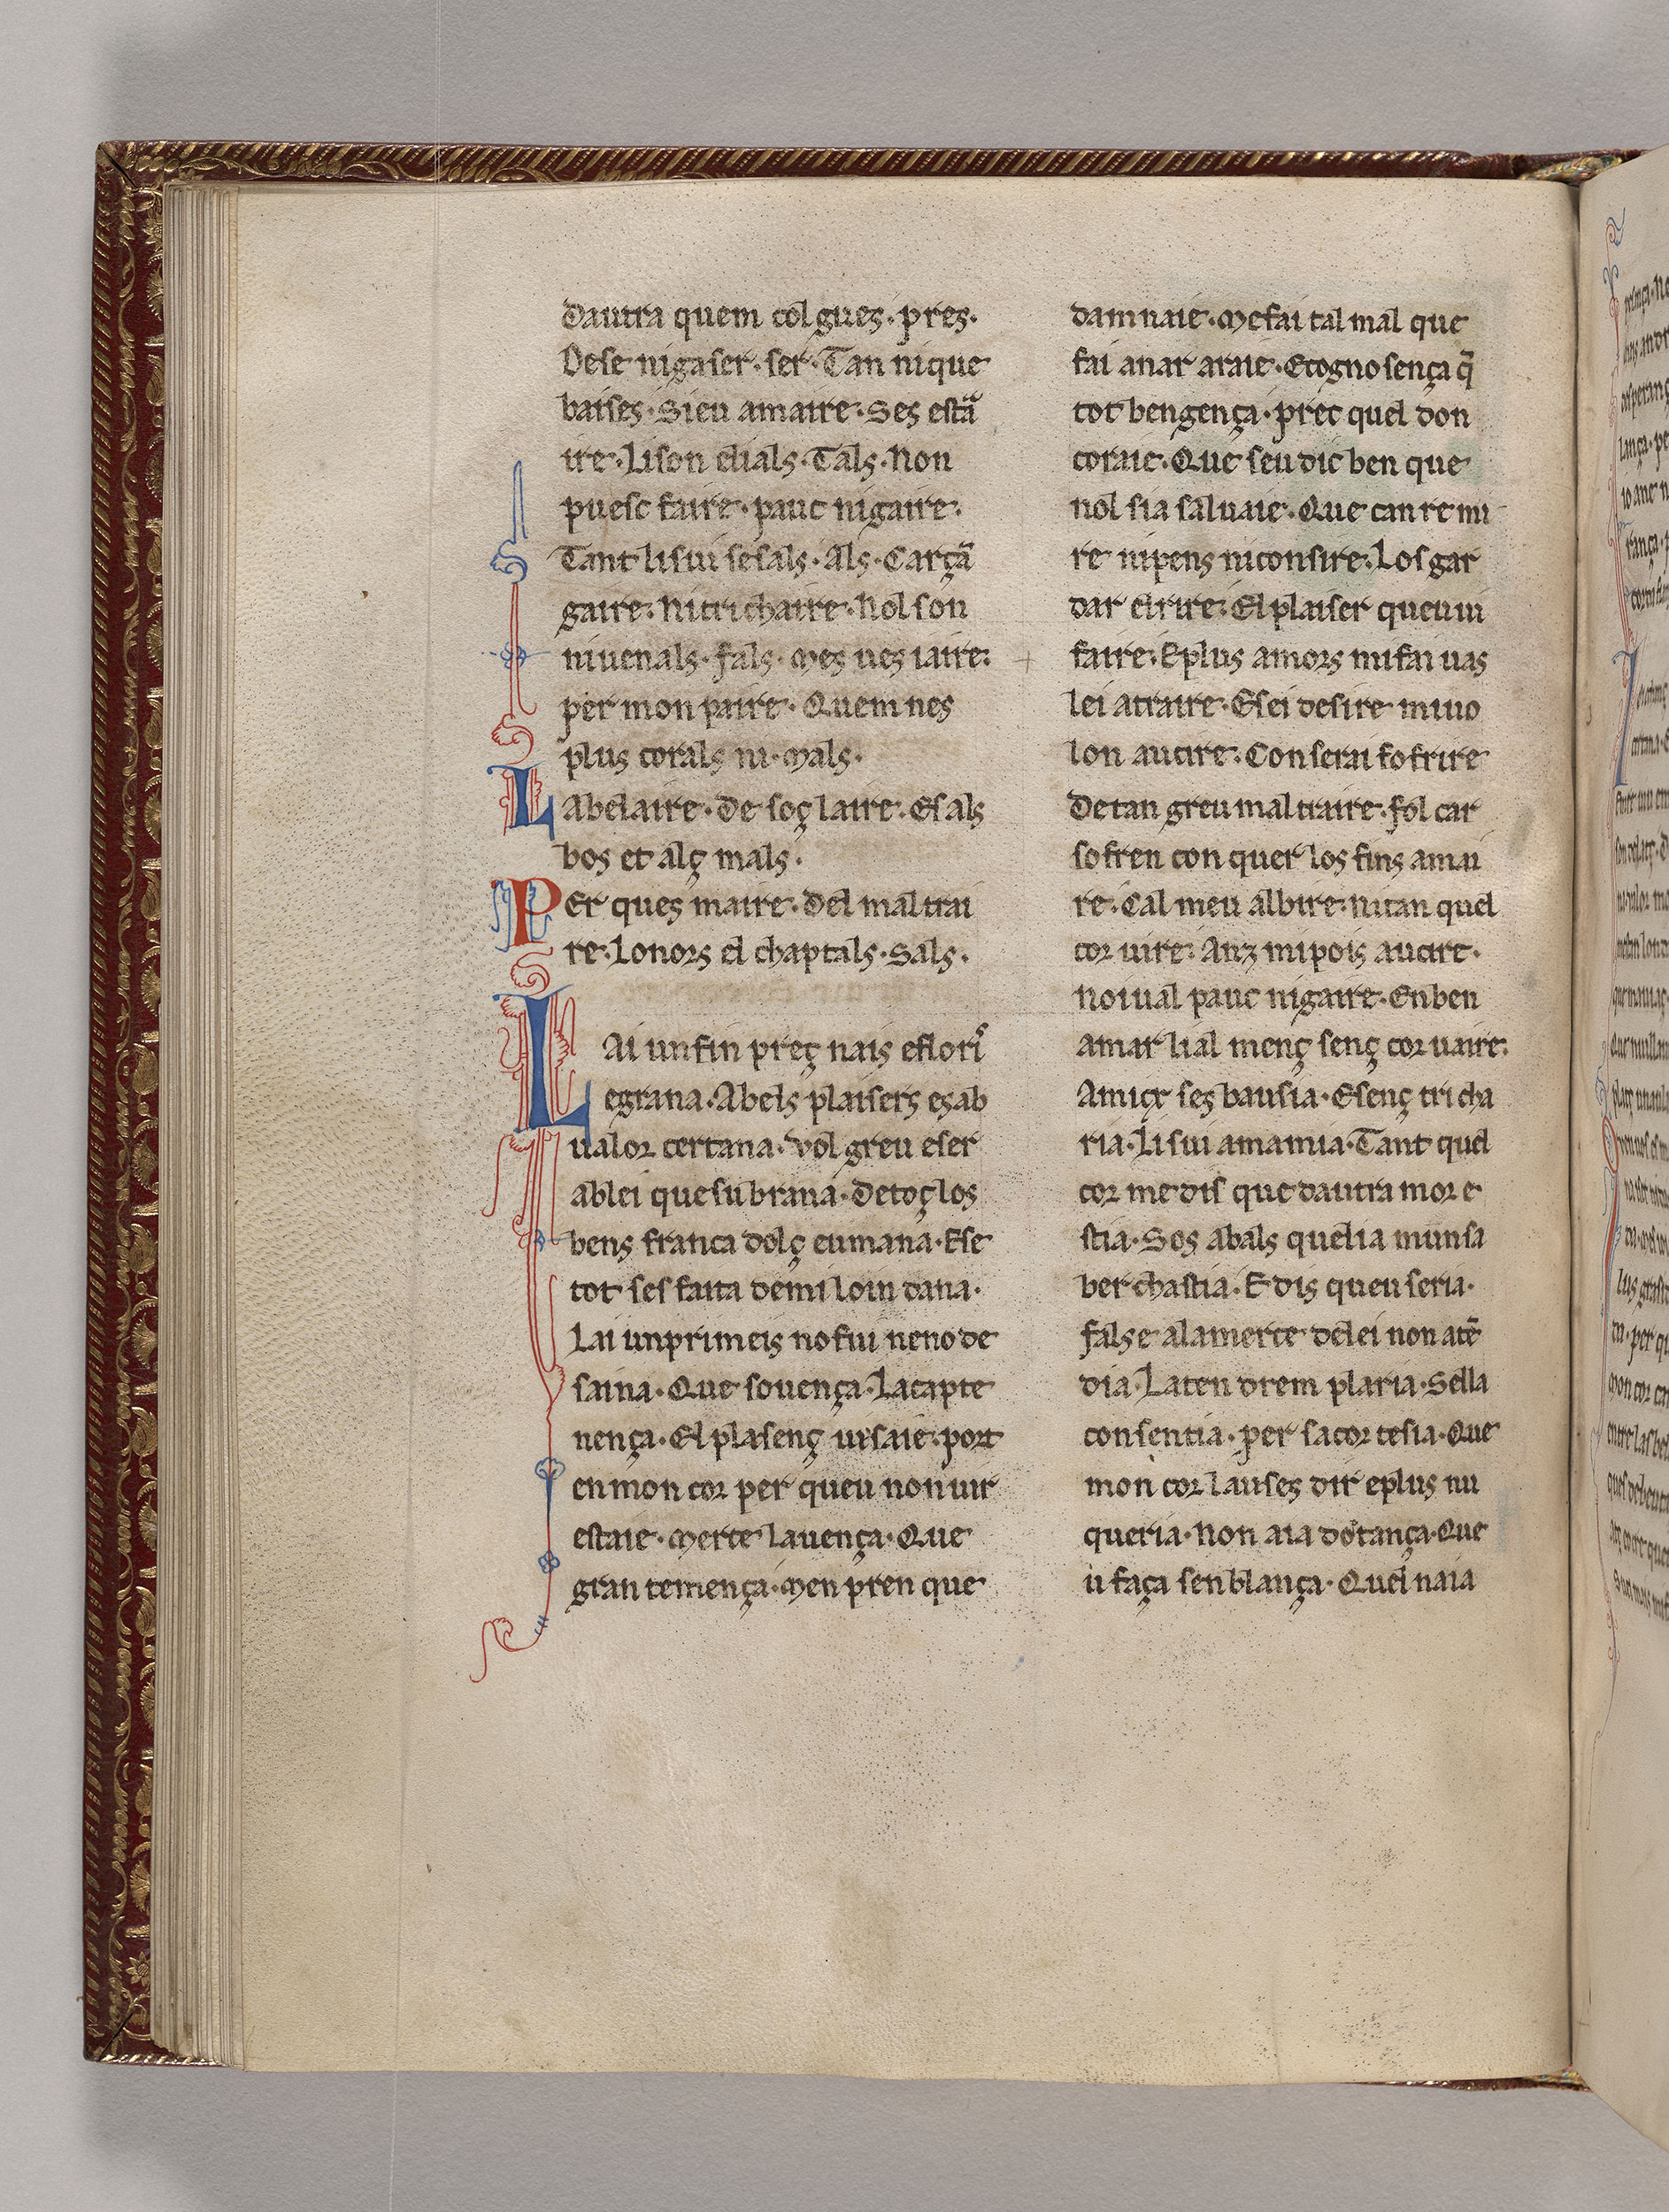 dautra quem col gues · pres ·
Dese nigaser · ser · Tan nique
baises · Sieu amaire · Ses esta
ire · Lison elials · Tals · Non
puesc faire · pauc nigaire ·
Tant lisui sesals · Als · Carçã
gaire · Nitrichaire · Nolson
niuenals · fals · Mes ues iaire ·
per mon paire · Quem nes
plus corals ni · mals ·
Labelaire · De soç laire · Esals
bos et alç mals ·
Per ques maire · Del maltrai
re · Lonors el chaptals · Sals ·
Lai un fin preç nais eflori
egrana · Abels plaisers esab
ualor certana · Vol greu eser
ablei quesubrana · Detoç los
bens franca dolç eumana · Ese
tot ses faita demi loin dana ·
Lai unprimeis nofui neno de
saina · Que souença · Lacapte
nença · El plasenç uisaie · port
en mon cor per queu non uir
estaie · Merce lauença · Que
gran temença · Men pren que
damnaie · Mefai tal mal que
fai anar araie · Ecognosença q̃
tot bengença · prec quel don
coraie · Que seu dic ben que
nol sia saluaie · Que can remi
re nipens niconsire · Los gar
dar elrire · El plaiser queu ui
faire · Eplus amors mi fai uas
lei atraire · Esei desire miuo
lon aucire · Con serai sofrire
De tan greu mal traire · fol car
sofren con quer los fins amai
re · Cal meu albire · nitan quel
cor uire · Anz mi pois aucire ·
noi ual pauc nigaire · En ben
amar lial menç senç cor uaire ·
Amicx ses bausia · Esenç tricha
ria · Li sui amamia · Tant quel
cor me dis que dautra mor e
stia · Sos abals quelia munsa
ber chastia · E dis queu seria ·
false alamerce delei non atẽ
dia · Laten drem plaria · Sella
consentia · per sa cor tesia · Que
mon cor lauses dir eplus nu
queria · Non aia dotança · Que
u faça senblança · Quel naia